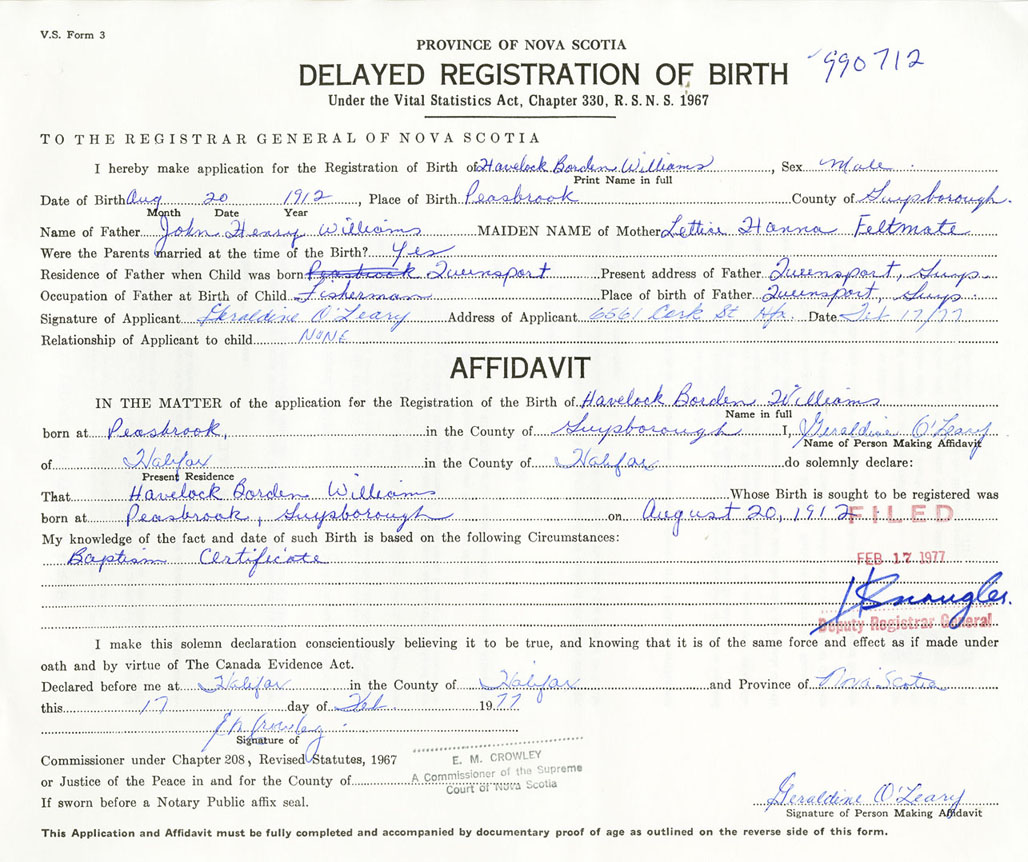 V.S. Form 3
PROVINCE OF NOVA SCOTIA
DELAYED REGISTRATION OF BIRTH
990712
Under the Vital Statistics Act, Chapter 330, R. S. N. S. 1967
TO THE REGISTRAR GENERAL OF NOVA SCOTIA
I hereby make application for the Registration of Birth of Havelock Borden Williams, Sex Male
Print Name in full
Date of Birth Aug 20 1912, Place of Birth Peasbrook County of Guysborough.
Month Date Year
Name of Father John Henry Williams MAIDEN NAME of Mother Lettice Hanna Feltmate
Were the Parents married at the time of the Birth? Yes
Residence of Father when Child was born Peasbrook Queensport Present address of Father Queensport, Guys.
Occupation of Father at Birth of Child Fisherman Place of birth of Father Queensport, Guys.
Signature of Applicant Geraldine O'Leary Address of Applicant 6561 St Hfx. Date Feb 17/77
Relationship of Applicant to child NONE
AFFIDAVIT
IN THE MATTER of the application for the Registration of the Birth of Havelock Borden Williams
Name in full
born at Peasbrook, in the County of Guysborough I, Geraldine O'Leary
Name of Person Making Affidavit
of Halifax in the County of Halifax do solemnly declare:
Present Residence
That Havelock Borden Williams Whose Birth is sought to be registered was
born at Peasbrook, Guysborough on August 20, 1912
FILED
My knowledge of the fact and date of such Birth is based on the following Circumstances:
Baptism Certificate
FEB 17 1977
Deputy Registrar General
I make this solemn declaration conscientiously believing it to be true, and knowing that it is of the same force and effect as if made under
oath and by virtue of The Canada Evidence Act.
Declared before me at Halifax in the County of Halifax and Province of Nova Scotia
this 17 day of Feb. 1977
E M Crowley
Signature of
Commissioner under Chapter 208, Revised Statutes, 1967
or Justice of the Peace in and for the County of
E. M. CROWLEY
A Commissioner of the Supreme
Court of Nova Scotia
If sworn before a Notary Public affix seal.
Geraldine O'Leary
Signature of Person Making Affidavit
This Application and Affidavit must be fully completed and accompanied by documentary proof of age as outlined on the reverse side of this form.